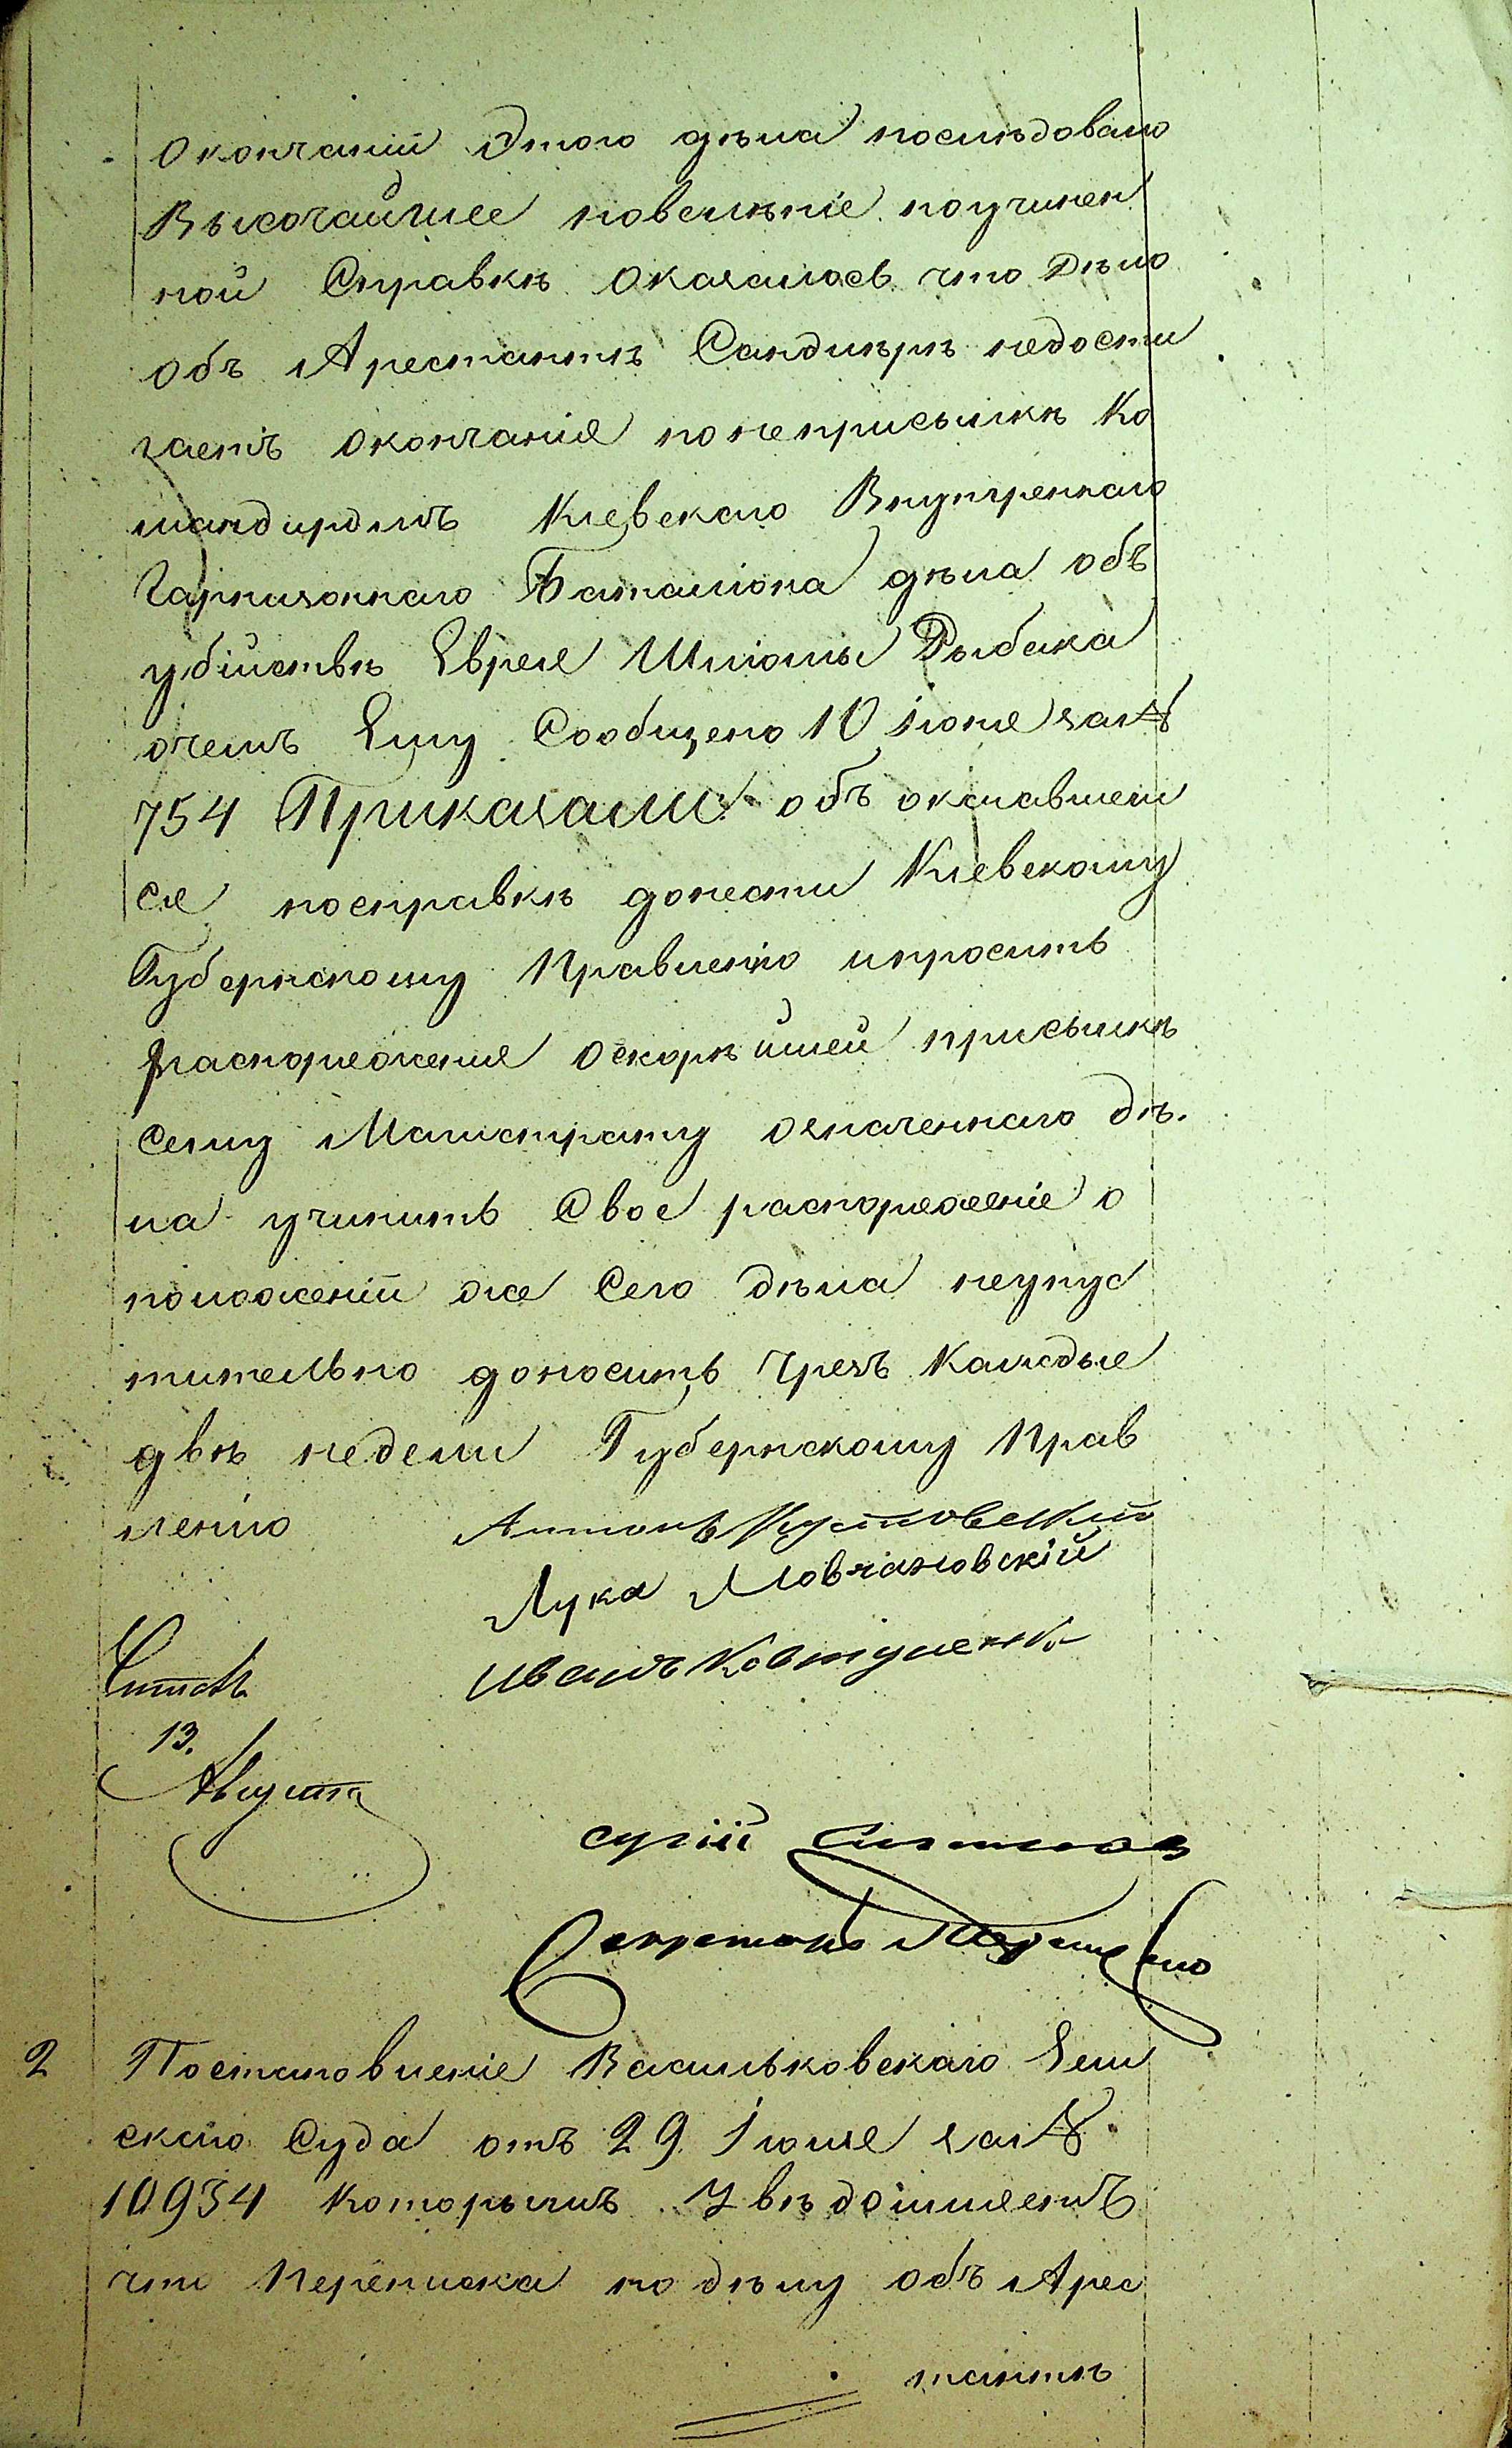 окончаніи Этого дѣла послѣдовало
Высочайшее повелѣніе поучинен
ной Справкѣ Оказалось что Дѣло
объ Арестантѣ Сандлерѣ недости
гаетъ окончанія понеприсылкѣ Ко
мандиромъ Кіевскаго Внутренняго
Гарнизоннаго Баталіона дѣла объ
убійствѣ Еврея Шліомы Рыбака
очемъ Ему Сообщено 10 іюня за №
754 Приказали: объ оказавшем
ся посправкѣ донести Кіевскому
Губернскому Правленію ипросить
распоряженія оскорѣйшей присылкѣ
Сему Магистрату означеннаго дѣ-
ла учинить Свое распоряженіе о
положеніи же Сего дѣла неупус
тительно доносить Чрезъ Каждые
двѣ недели Губернскому Прав
ленію
Антонъ
Лука Мовчановскій
Иванъ Ковтуненко
Читалъ
13.
Августа
Секретарь
2 Постановленіе Васильковскаго Зем
скаго Суда отъ 29 Іюля за №
10934 Которымъ Увѣдомляетъ
что Переписка по дѣлу объ Арес
тантѣ